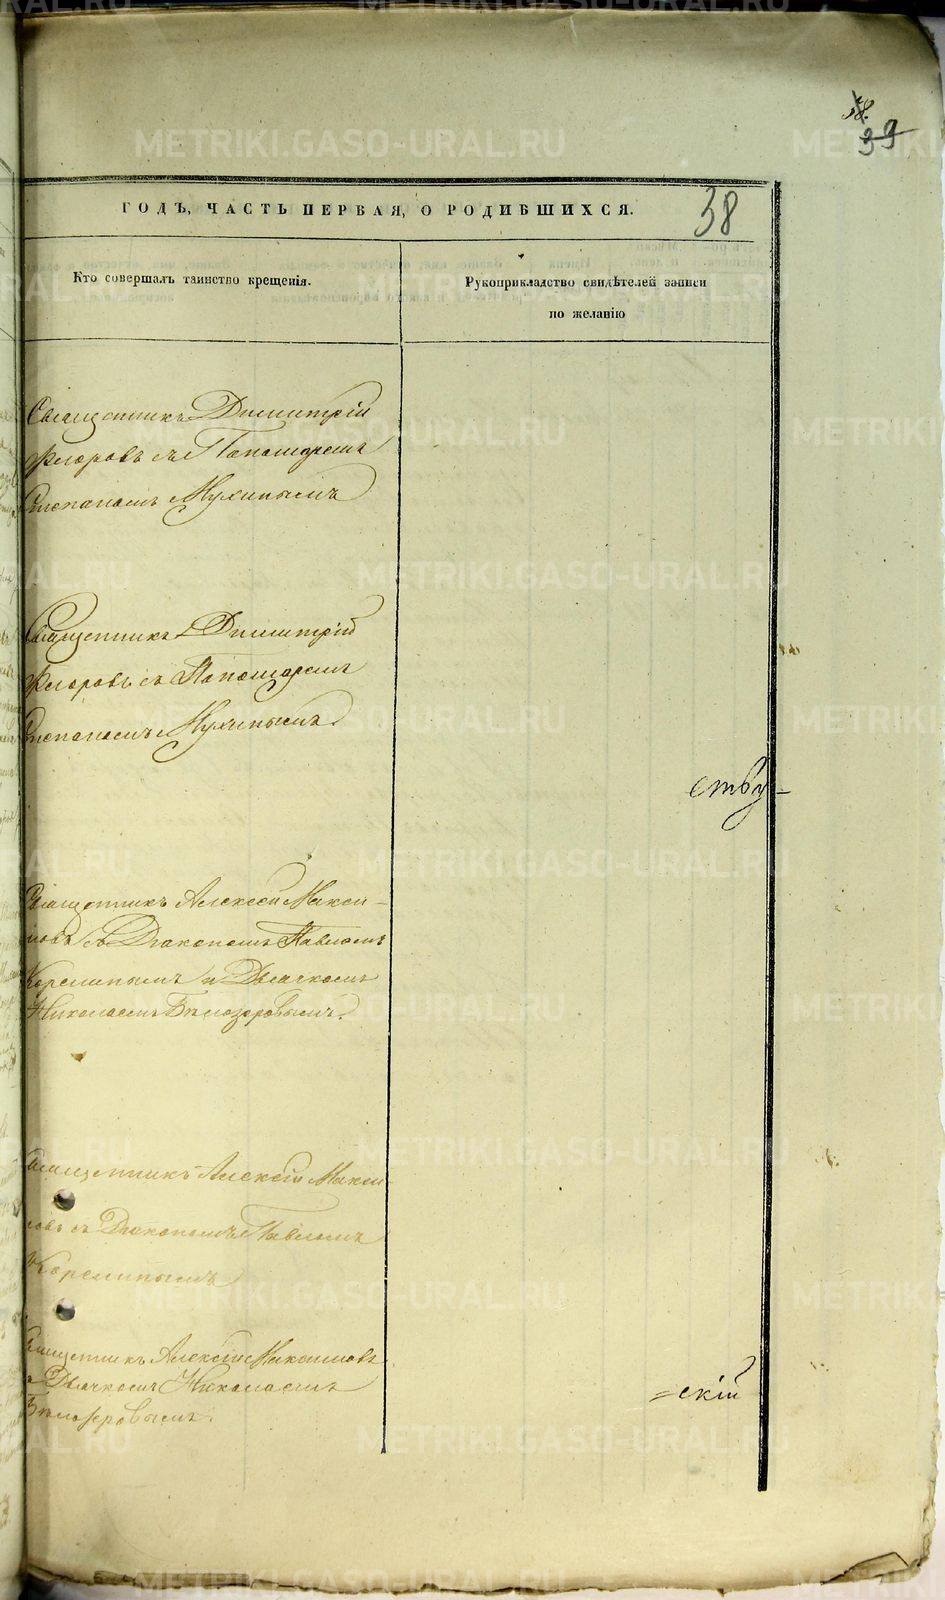 39
ГОДЪ, ЧАСТЬ ПЕРВАЯ, О РОДИВШИХСЯ.
38
Кто совершалъ таинство крещенія.
Рукоприкладство свидѣтелей записи
по желанію
Священникъ Димитрій
Флоровъ съ Пономаремъ
Степаномъ Мухинымъ
Священникъ Димитрій
Флоровъ съ Пономаремъ
Степаномъ Мухинымъ
ству
Священникъ Алексей Макси-
мовъ съ Діакономъ Павломъ
Корелинымъ и Дьячкомъ
Николаемъ Бѣлозеровымъ.
Священникъ Алексій Макси-
мовъ съ Діакономъ Павломъ
Корелинымъ
Священникъ Алексій Максимовъ
съ Дьячкомъ Николаемъ
Бѣлозеровымъ.
=скій
METRIKI.GASO-URAL.RU